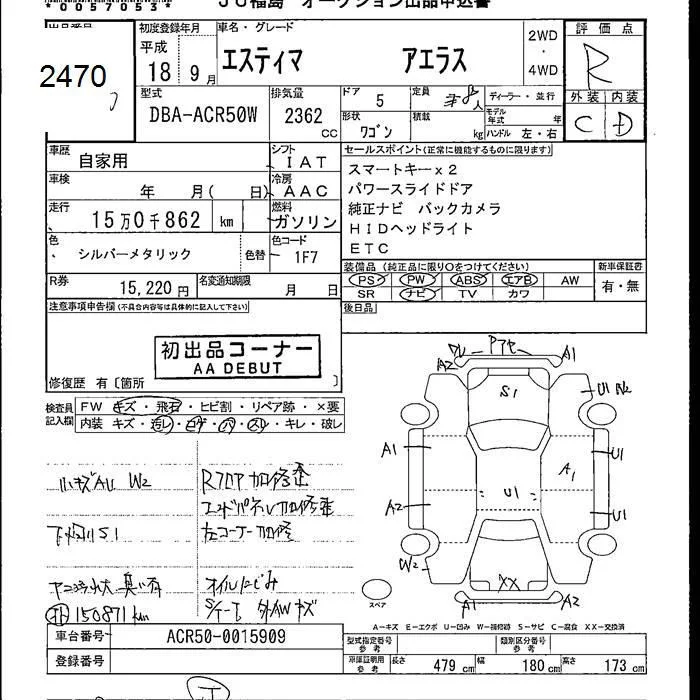 *0057053*
JU福島 オークション出品申込書
出品番号
2470
初度登録年月
平成
18 9月
車名・グレード
エスティマ アエラス
2WD
・
4WD
評価点
R
外装 内装
C D
型式
DBA-ACR50W
排気量
2362
CC
ドア
5
定員
8人
ディーラー・並行
形状
ワゴン
積載
kg
モデル年式 年
ハンドル 左・右
車歴
自家用
シフト
IAT
車検
年 月( 日)
冷房
AAC
走行
15万0千862 km
燃料
ガソリン
色
シルバーメタリック
色替
色コード
1F7
R券
15,220円
名変通知期限
月 日
セールスポイント(正常に機能するものに限ります)
スマートキーx2
パワースライドドア
純正ナビ バックカメラ
HIDヘッドライト
ETC
装備品(純正品に限り○をつけてください)
PS PW ABS エアB AW
SR ナビ TV カワ
新車保証書
有・無
後日品
注意事項申告欄(不具合内容等は具体的に記入して下さい)
初出品コーナー
AA DEBUT
修復歴 有〔箇所 〕
検査員記入欄
FW キズ・飛石・ヒビ割・リペア跡・×要
内装 キズ・汚レ・コゲ・穴・スレ・キレ・破レ
小キズAU W2
下廻りS1
ヤニ 臭い有
150871km
Rフロア加修歪
エンドパネル加修
左コーナー加修
オイルにじみ
外AWキズ
A2 A1
S1
U1 W2
A1
U1
A1
U1
A2
U1
W2
XX
A1 A2
スペア
A-キズ E-エクボ U-凹み W-補修跡 S-サビ C-腐食 XX-交換済
車台番号
ACR50-0015909
登録番号
型式指定番号
類別区分番号
車庫証明用参考
長さ 479cm 幅 180cm 高さ 173cm